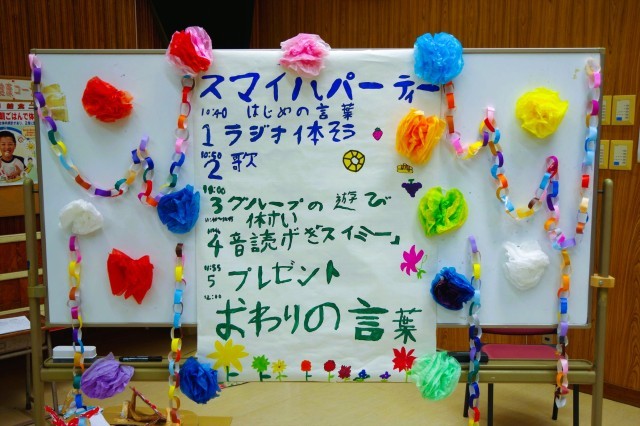 スマイルパーティー
10:40 はじめの言葉
1 ラジオ体そう
10:50
2 歌
3 グループの遊び
休けい
4 音読げきスイミー」
11:55
5 プレゼント
12:00
おわりの言葉